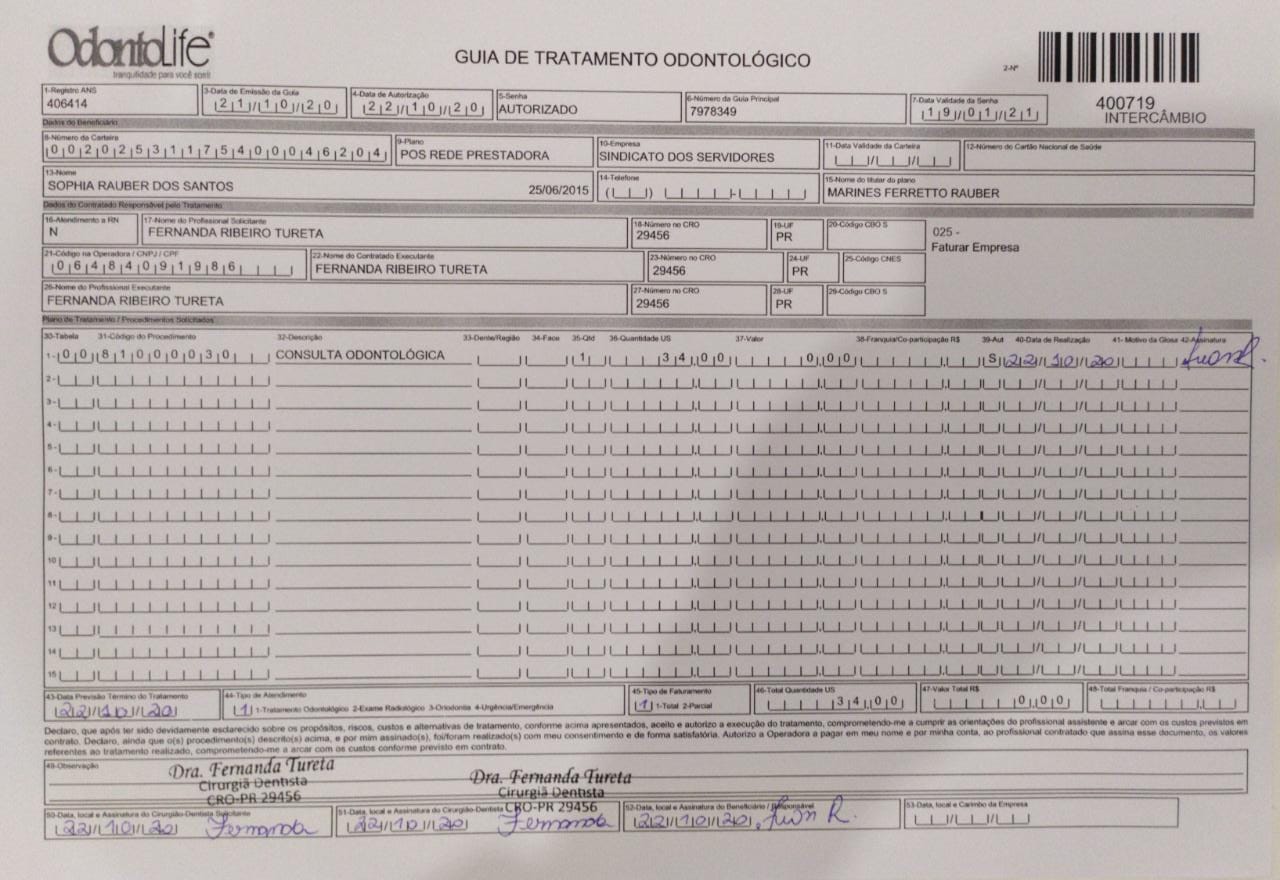 OdontoLife
tranquilidade para você sorrir
GUIA DE TRATAMENTO ODONTOLÓGICO
2-Nº
400719
INTERCÂMBIO
1-Registro ANS
406414
3-Data de Emissão da Guia
21/10/20
4-Data de Autorização
22/10/20
5-Senha
AUTORIZADO
6-Número da Guia Principal
7978349
7-Data Validade da Senha
19/01/21
Dados do Beneficiário
8-Número da Carteira
00202531175400046204
9-Plano
POS REDE PRESTADORA
10-Empresa
SINDICATO DOS SERVIDORES
11-Data Validade da Carteira
12-Número do Cartão Nacional de Saúde
13-Nome
SOPHIA RAUBER DOS SANTOS 25/06/2015
14-Telefone
15-Nome do titular do plano
MARINES FERRETTO RAUBER
Dados do Contratado Responsável pelo Tratamento
16-Atendimento a RN
N
17-Nome do Profissional Solicitante
FERNANDA RIBEIRO TURETA
18-Número no CRO
29456
19-UF
PR
20-Código CBO S
025 -
Faturar Empresa
21-Código na Operadora / CNPJ / CPF
06484091986
22-Nome do Contratado Executante
FERNANDA RIBEIRO TURETA
23-Número no CRO
29456
24-UF
PR
25-Código CNES
26-Nome do Profissional Executante
FERNANDA RIBEIRO TURETA
27-Número no CRO
29456
28-UF
PR
29-Código CBO S
Plano de Tratamento / Procedimentos Solicitados
30-Tabela 31-Código do Procedimento 32-Descrição 33-Dente/Região 34-Face 35-Qtd 36-Quantidade US 37-Valor 38-Franquia/Co-participação R$ 39-Aut 40-Data de Realização 41- Motivo da Glosa 42-Assinatura
1- 00 81000030 CONSULTA ODONTOLÓGICA 1 34,00 0,00 S 22/10/20
2-
3-
4-
5-
6-
7-
8-
9-
10
11
12
13
14
15
43-Data Previsão Término do Tratamento
22/10/20
44-Tipo de Atendimento
1 1-Tratamento Odontológico 2-Exame Radiológico 3-Ortodontia 4-Urgência/Emergência
45-Tipo de Faturamento
1 1-Total 2-Parcial
46-Total Quantidade US
34,00
47-Valor Total R$
0,00
48-Total Franquia / Co-participação R$
Declaro, que após ter sido devidamente esclarecido sobre os propósitos, riscos, custos e alternativas de tratamento, conforme acima apresentados, aceito e autorizo a execução do tratamento, comprometendo-me a cumprir as orientações do profissional assistente e arcar com os custos previstos em
contrato. Declaro, ainda que o(s) procedimento(s) descrito(s) acima, e por mim assinado(s), foi/foram realizado(s) com meu consentimento e de forma satisfatória. Autorizo a Operadora a pagar em meu nome e por minha conta, ao profissional contratado que assina esse documento, os valores
referentes ao tratamento realizado, comprometendo-me a arcar com os custos conforme previsto em contrato.
49-Observação
Dra. Fernanda Tureta
Cirurgiã Dentista
CRO-PR 29456
Dra. Fernanda Tureta
Cirurgiã Dentista
CRO-PR 29456
50-Data, local e Assinatura do Cirurgião-Dentista Solicitante
22/10/20 Fernanda
51-Data, local e Assinatura do Cirurgião-Dentista
22/10/20 Fernanda
52-Data, local e Assinatura do Beneficiário / Responsável
22/10/20
53-Data, local e Carimbo da Empresa